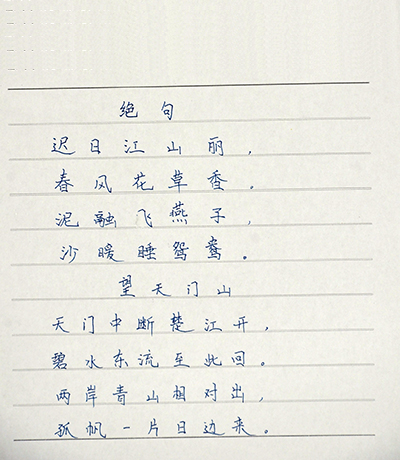 绝句
迟日江山丽，
春风花草香。
泥融飞燕子，
沙暖睡鸳鸯。
望天门山
天门中断楚江开，
碧水东流至此回。
两岸青山相对出，
孤帆一片日边来。